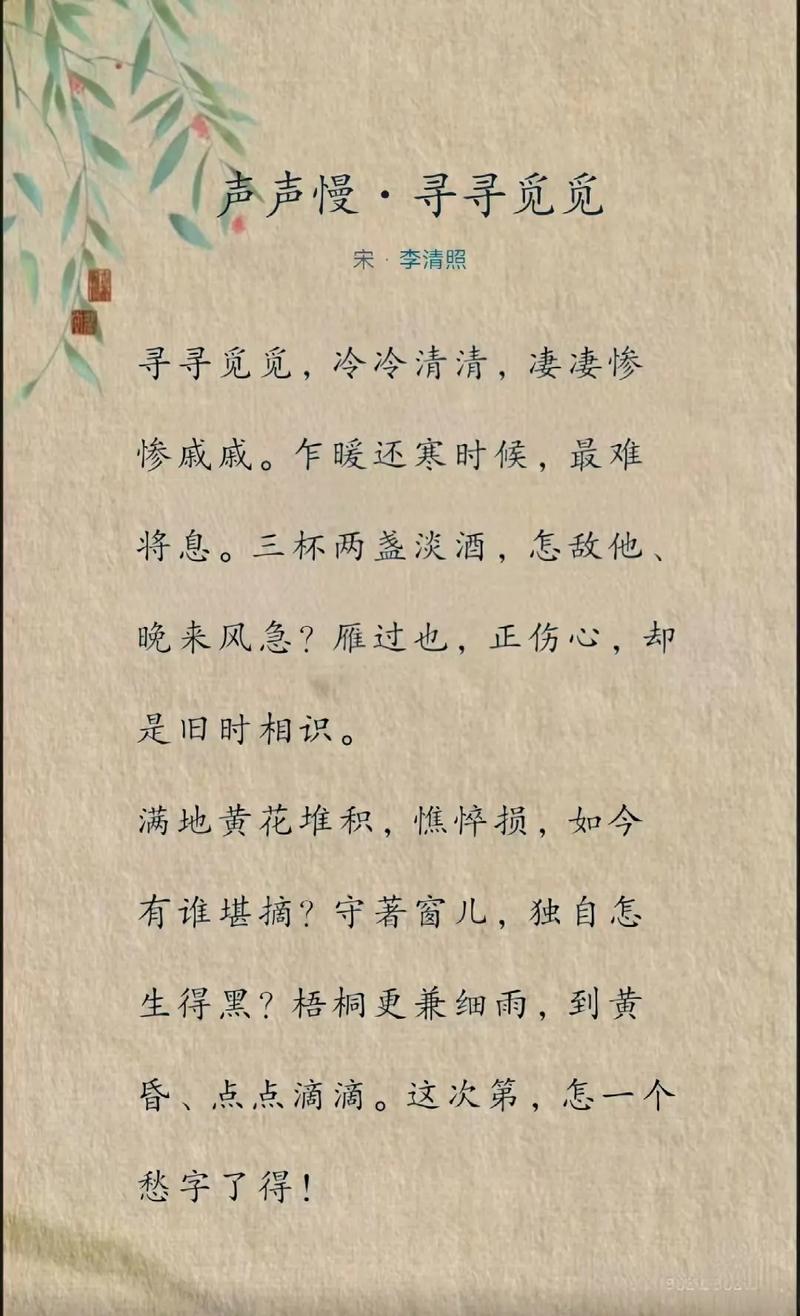 声声慢·寻寻觅觅
宋·李清照
寻寻觅觅，冷冷清清，凄凄惨
惨戚戚。乍暖还寒时候，最难
将息。三杯两盏淡酒，怎敌他、
晚来风急？雁过也，正伤心，却
是旧时相识。
满地黄花堆积，憔悴损，如今
有谁堪摘？守著窗儿，独自怎
生得黑？梧桐更兼细雨，到黄
昏、点点滴滴。这次第，怎一个
愁字了得！